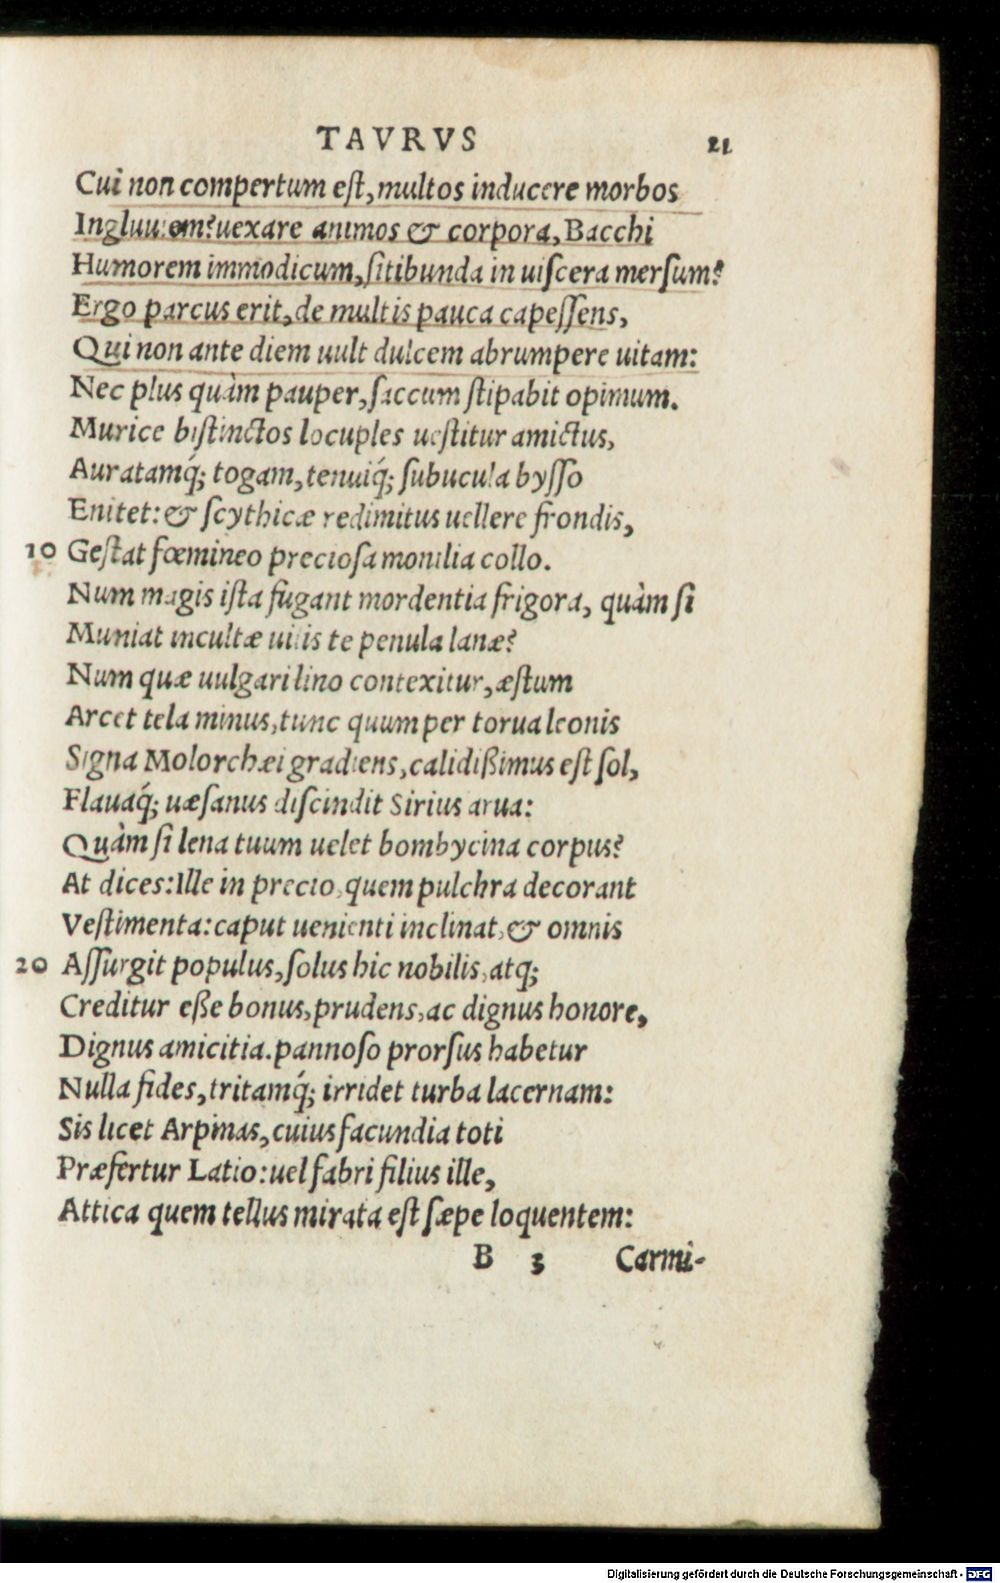 TAVRVS 21
Cui non compertum eſt, multos inducere morbos
Ingluuiem? uexare animos & corpora, Bacchi
Humorem immodicum, ſitibunda in uiſcera merſum?
Ergo parcus erit, de multis pauca capeſſens,
Qui non ante diem uult dulcem abrumpere uitam:
Nec plus quàm pauper, ſaccum ſtipabit opimum.
Murice biſtinctos locuples ueſtitur amictus,
Auratamq́; togam, tenuiq́; ſubucula byſſo
Enitet: & ſcythicæ redimitus uellere frondis,
10 Geſtat fœmineo precioſa monilia collo.
Num magis iſta fugant mordentia frigora, quàm ſi
Muniat incultæ uilis te penula lanæ?
Num quæ uulgari lino contexitur, æſtum
Arcet tela minus, tunc quum per torua leonis
Signa Molorchæi gradiens, calidißimus eſt ſol,
Flauaq́; uæſanus diſcindit Sirius arua:
Quàm ſi lena tuum uelet bombycina corpus?
At dices: Ille in precio, quem pulchra decorant
Veſtimenta: caput uenienti inclinat, & omnis
20 Aſſurgit populus, ſolus hic nobilis, atq;
Creditur eße bonus, prudens, ac dignus honore,
Dignus amicitia. pannoſo prorſus habetur
Nulla fides, tritamq́; irridet turba lacernam:
Sis licet Arpinas, cuius facundia toti
Præfertur Latio: uel fabri filius ille,
Attica quem tellus mirata eſt ſæpe loquentem:
B 3 Carmi-
Digitalisierung gefördert durch die Deutsche Forschungsgemeinschaft - DFG